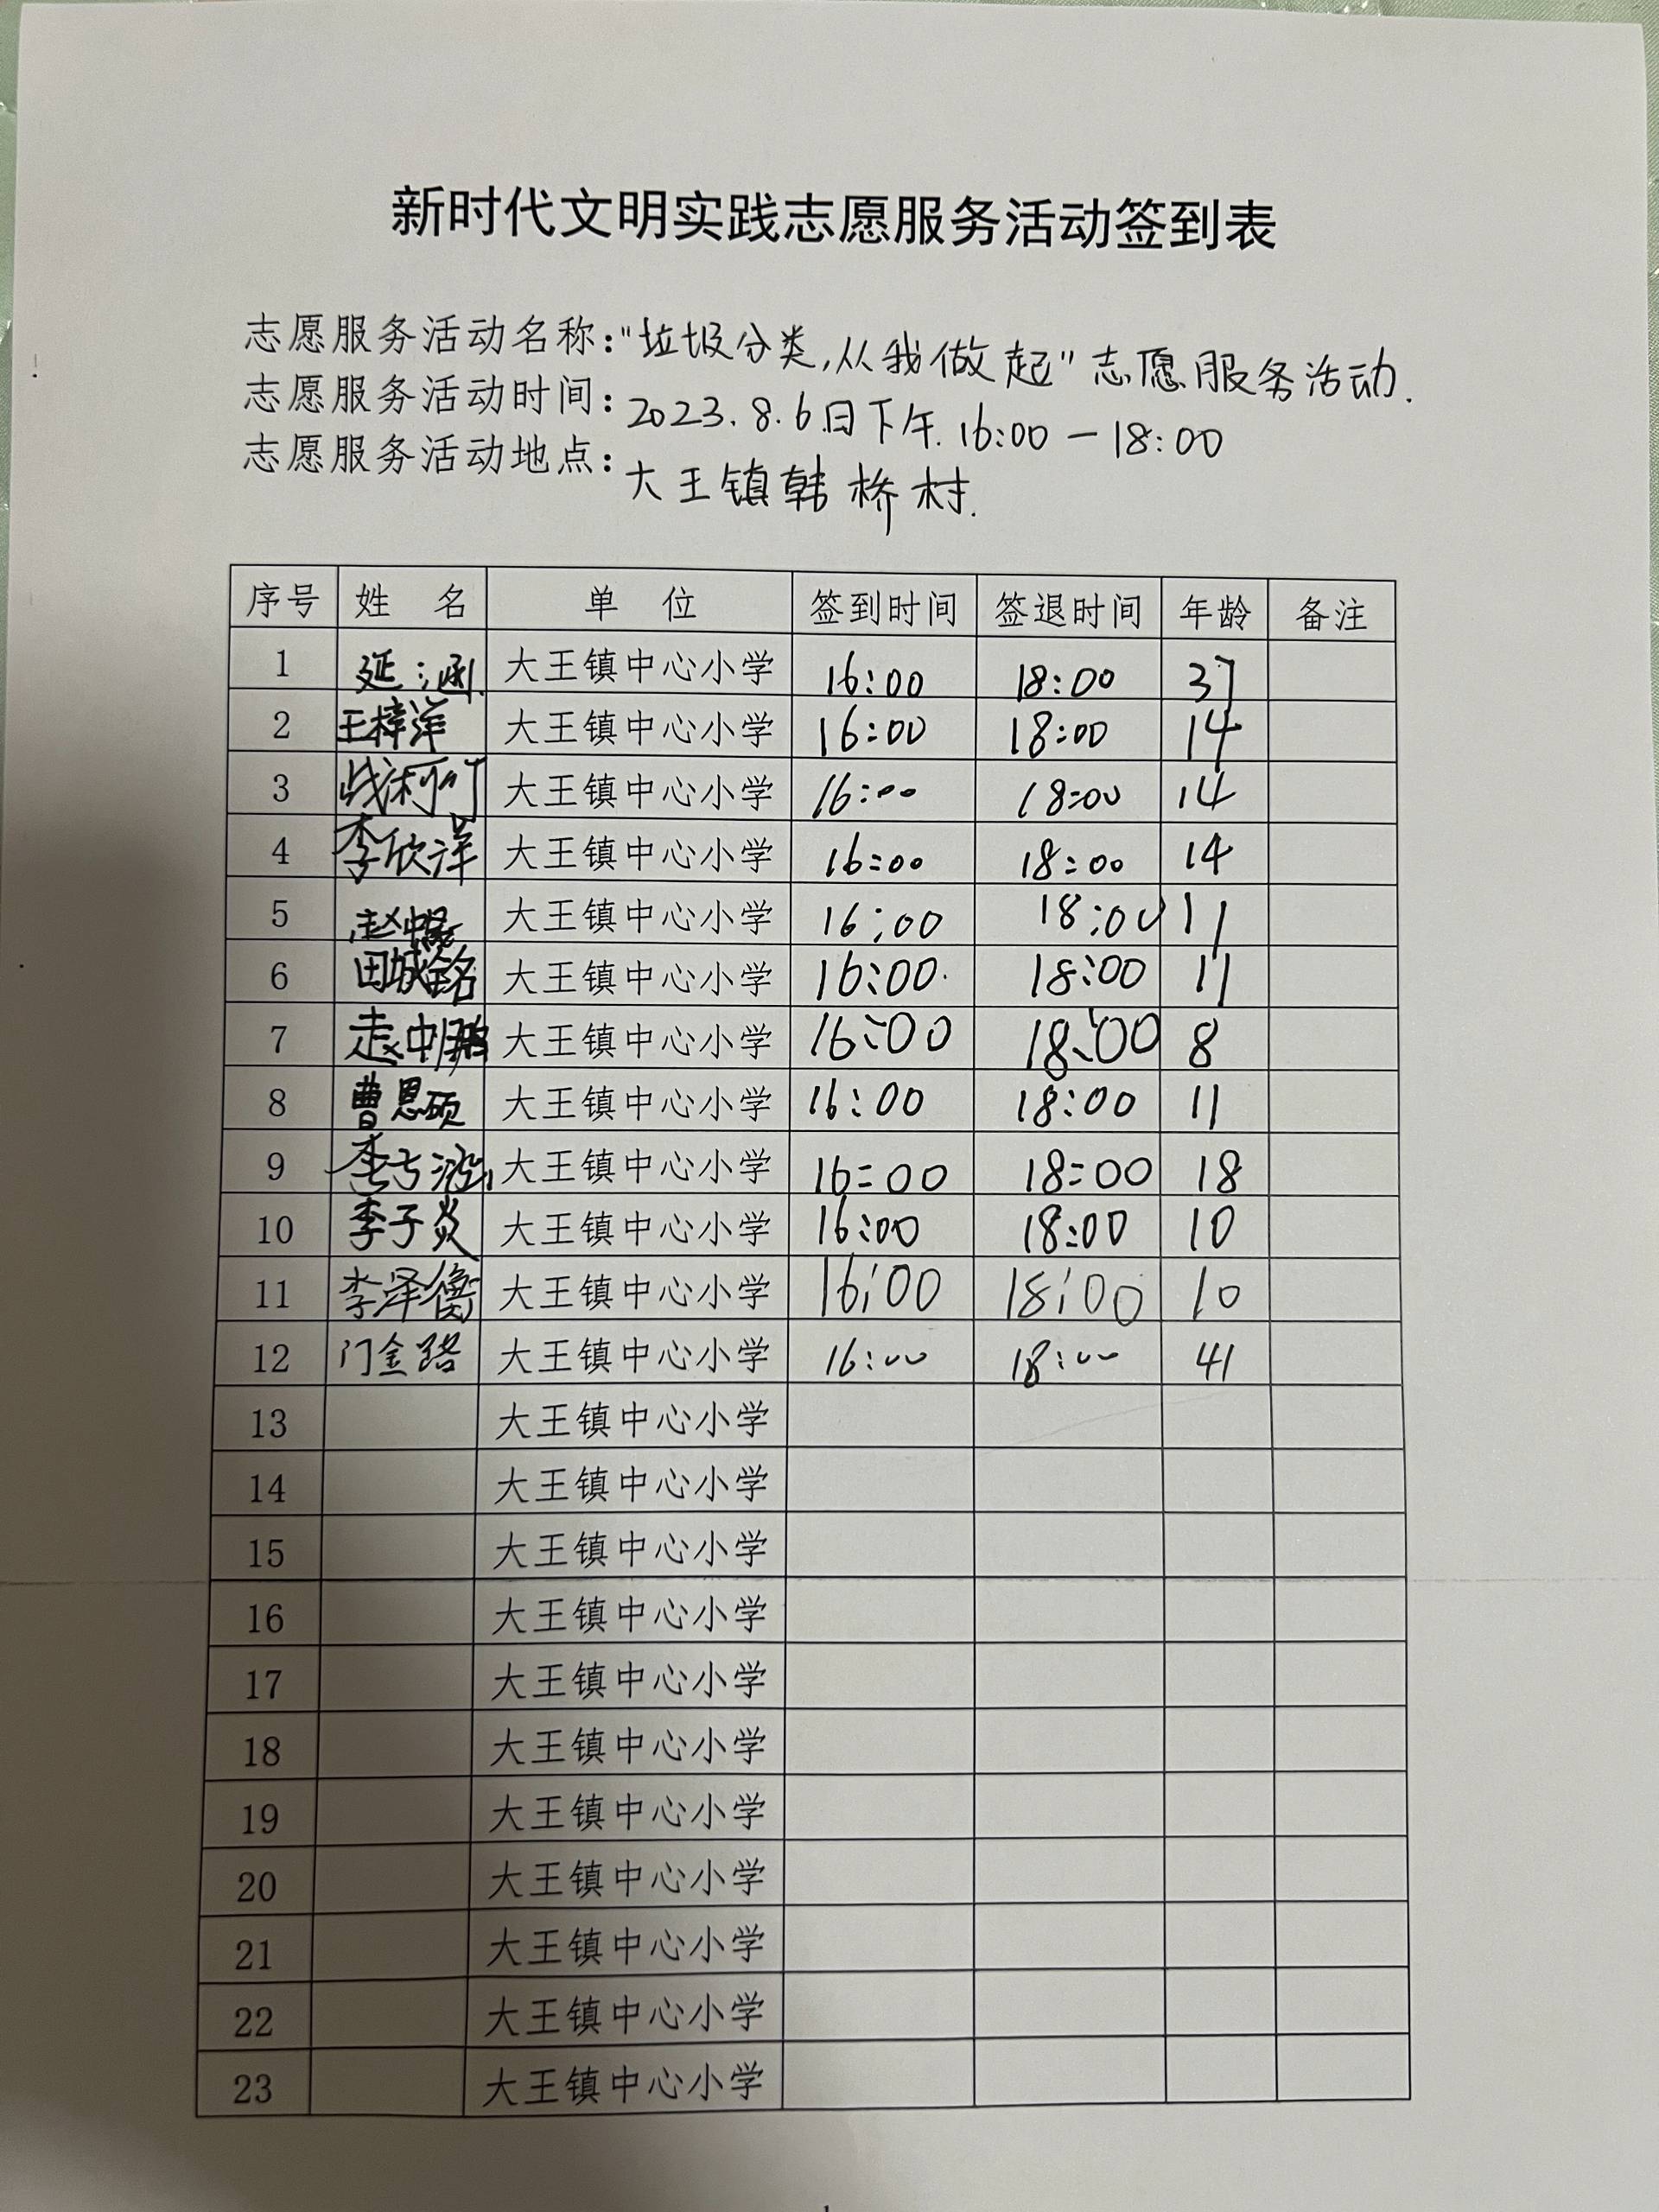 新时代文明实践志愿服务活动签到表
志愿服务活动名称:"垃圾分类,从我做起"志愿服务活动.
志愿服务活动时间:2023.8.6日下午.16:00—18:00
志愿服务活动地点:大王镇韩桥村.
序号 姓 名 单 位 签到时间 签退时间 年龄 备注
1 延 大王镇中心小学 16:00 18:00 37
2 王梓洋 大王镇中心小学 16:00 18:00 14
3 大王镇中心小学 16:00 18:00 14
4 李欣洋 大王镇中心小学 16:00 18:00 14
5 赵 大王镇中心小学 16:00 18:00 11
6 田城铭 大王镇中心小学 16:00 18:00 11
7 赵中 大王镇中心小学 16:00 18:00 8
8 曹恩硕 大王镇中心小学 16:00 18:00 11
9 李 大王镇中心小学 16:00 18:00 18
10 李子炎 大王镇中心小学 16:00 18:00 10
11 李泽衡 大王镇中心小学 16:00 18:00 10
12 门金路 大王镇中心小学 16:00 18:00 41
13 大王镇中心小学
14 大王镇中心小学
15 大王镇中心小学
16 大王镇中心小学
17 大王镇中心小学
18 大王镇中心小学
19 大王镇中心小学
20 大王镇中心小学
21 大王镇中心小学
22 大王镇中心小学
23 大王镇中心小学